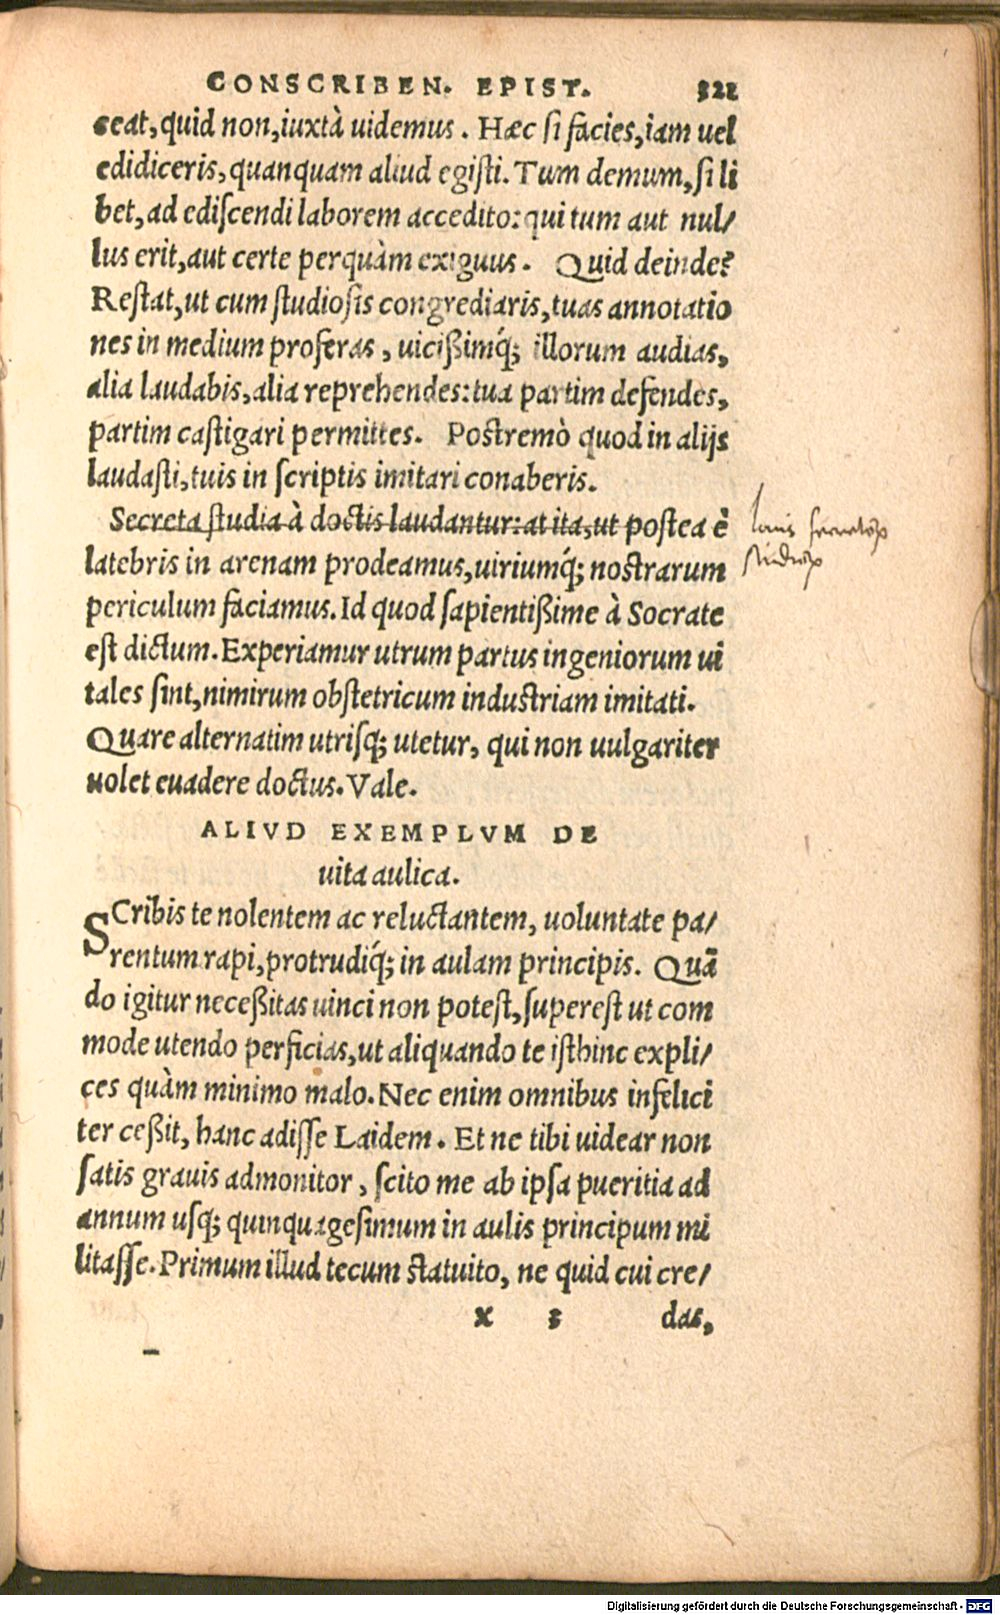 CONSCRIBEN. EPIST. 321
ceat, quid non, iuxtà uidemus. Hæc si facies, iam uel
edidiceris, quanquam aliud egisti. Tum demum, si li
bet, ad ediscendi laborem accedito: qui tum aut nul/
lus erit, aut certe perquàm exiguus. Quid deinde?
Restat, ut cum studiosis congrediaris, tuas annotatio
nes in medium proferas, uicißimq́; illorum audias,
alia laudabis, alia reprehendes: tua partim defendes,
partim castigari permittes. Postremò quod in alijs
laudasti, tuis in scriptis imitari conaberis.
Secreta studia à doctis laudantur: at ita, ut postea è
latebris in arenam prodeamus, uiriumq́; nostrarum
periculum faciamus. Id quod sapientißime à Socrate
est dictum. Experiamur utrum partus ingeniorum ui
tales sint, nimirum obstetricum industriam imitati.
Quare alternatim utrisq; utetur, qui non uulgariter
uolet euadere doctus. Vale.
ALIVD EXEMPLVM DE
uita aulica.
SCribis te nolentem ac reluctantem, uoluntate pa/
rentum rapi, protrudiq́; in aulam principis. Quā
do igitur neceßitas uinci non potest, superest ut com
mode utendo perficias, ut aliquando te isthinc expli/
ces quàm minimo malo. Nec enim omnibus infelici
ter ceßit, hanc adisse Laidem. Et ne tibi uidear non
satis grauis admonitor, scito me ab ipsa pueritia ad
annum usq; quinquagesimum in aulis principum mi
litasse. Primum illud tecum statuito, ne quid cui cre/
x 3 das,
Digitalisierung gefördert durch die Deutsche Forschungsgemeinschaft - DFG